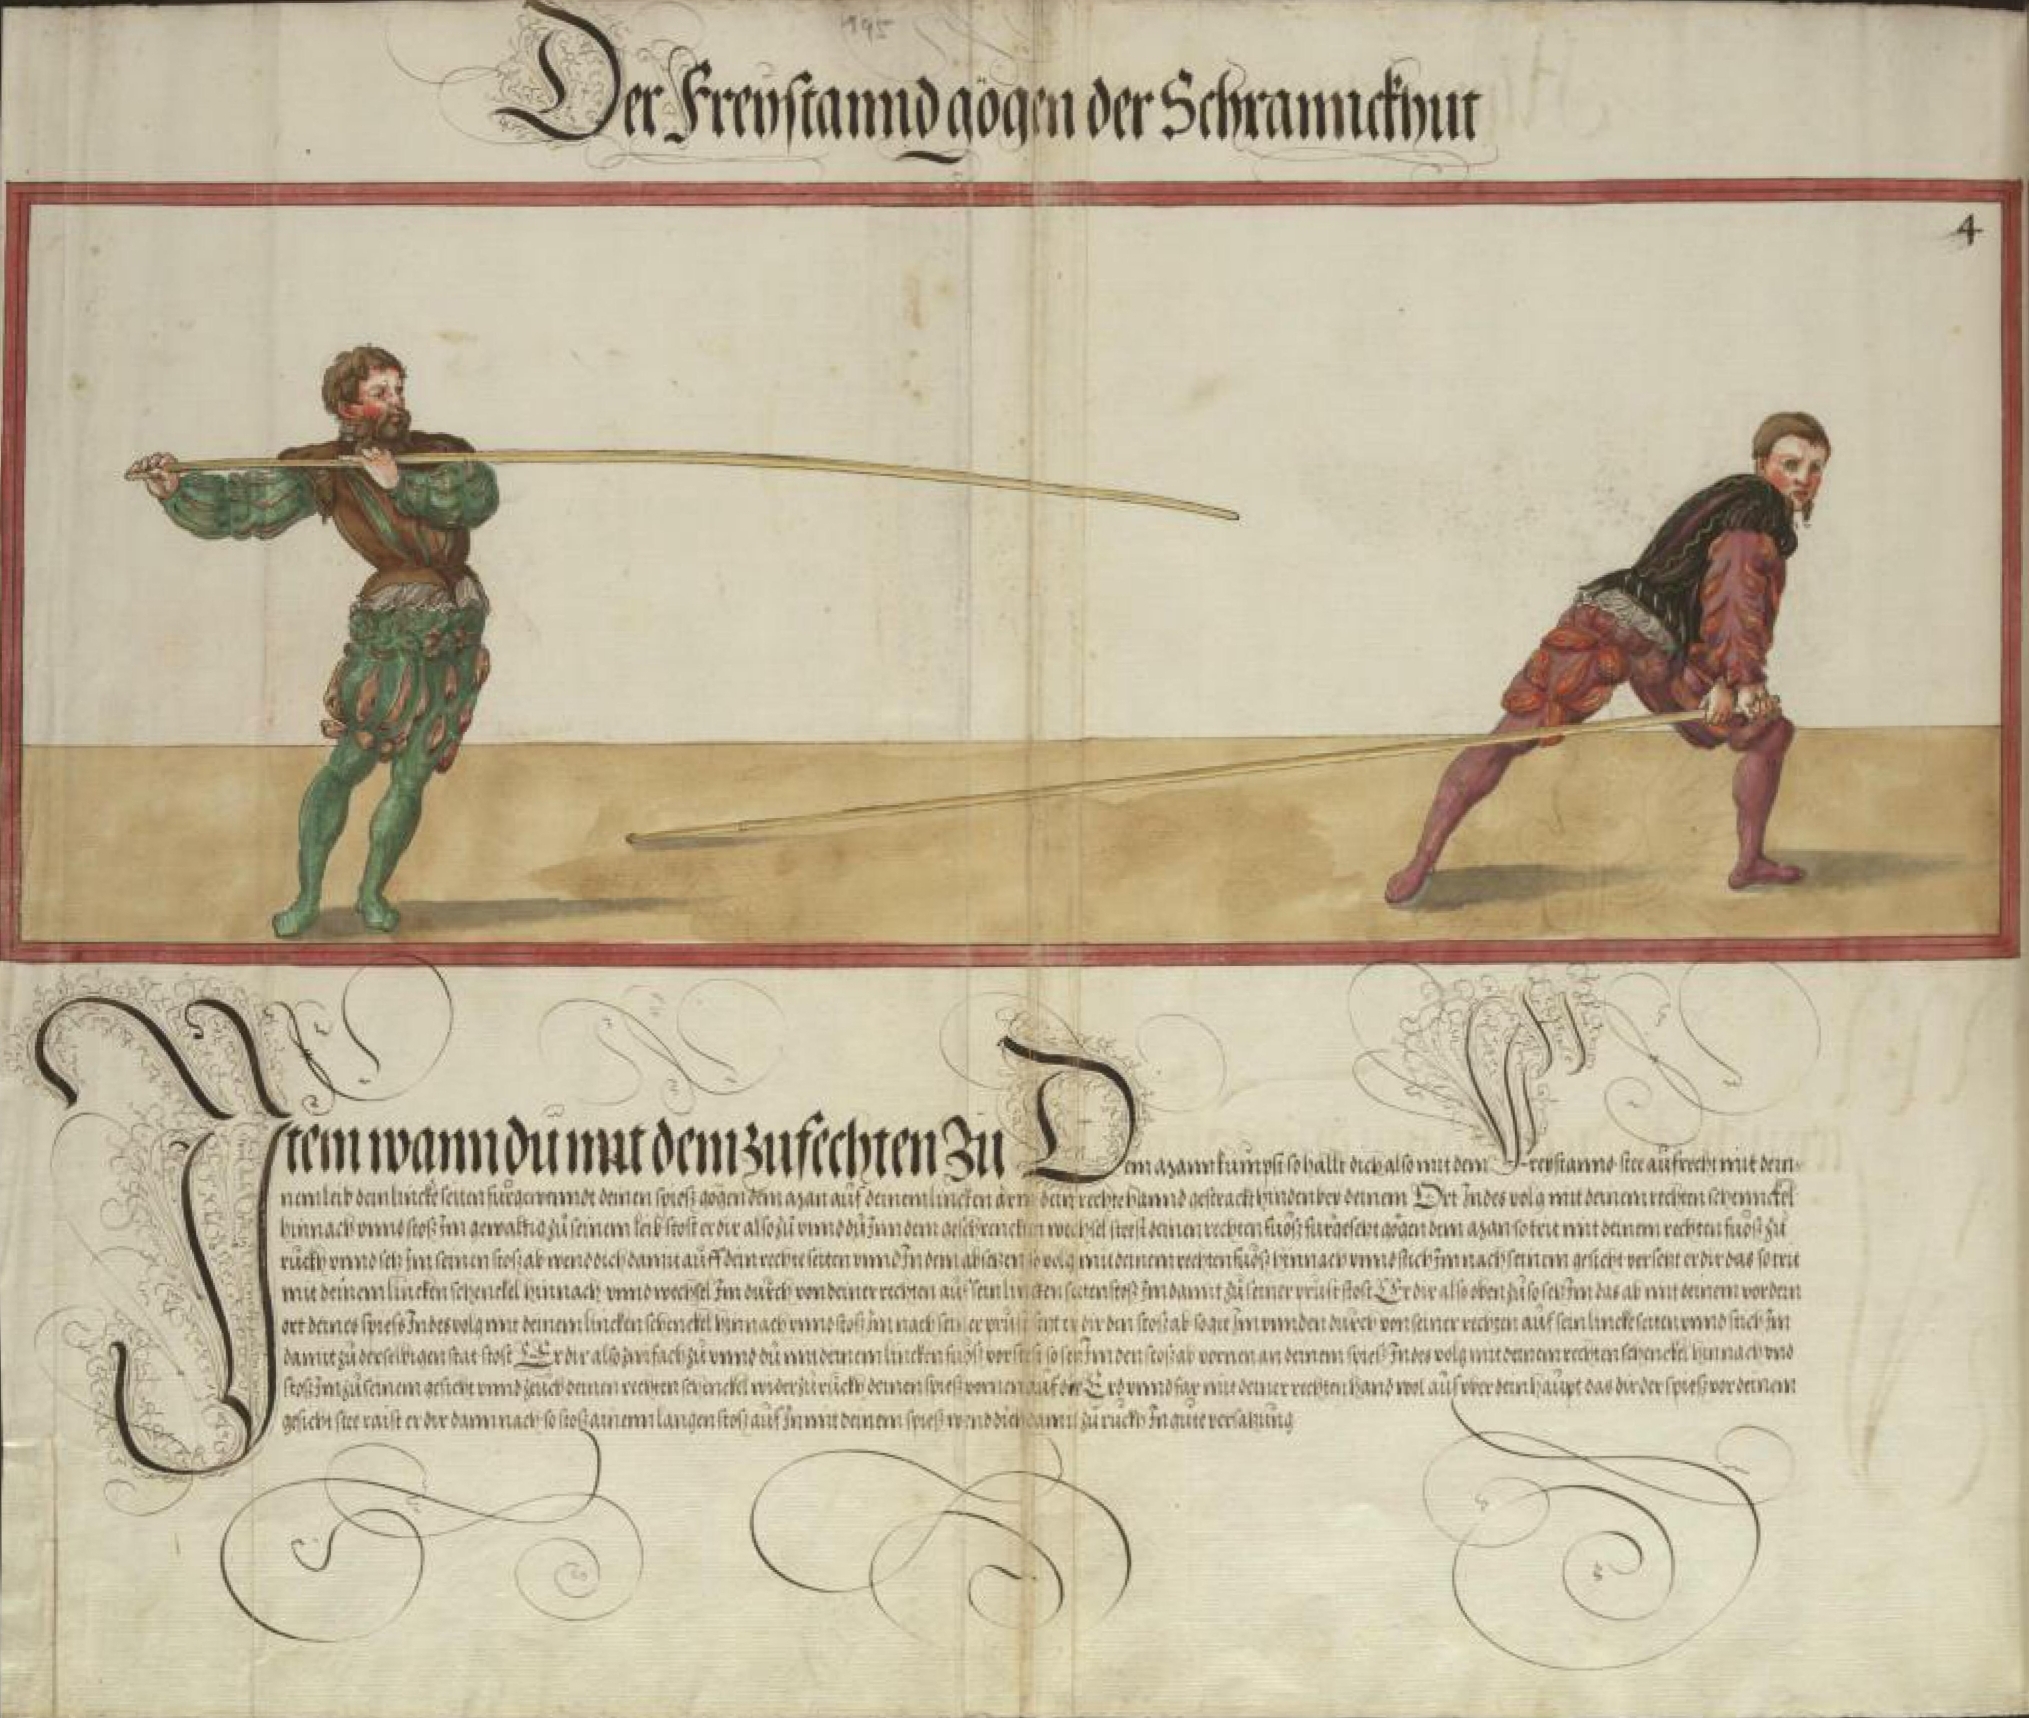 1995
Der Freystannd gögen der Schranckhut
4
Item wann du mit dem zufechten Zu Dem Mann kumpst so hallt dich also mit dem Freystannd stee aufrecht mit dein¬
nem leib dein lincke seiten fürgewenndt deinen spiess gögen dem Man auf deinem lincken arm dein rechte hannd gestrackt hinden bey deinem Ort Indes volg mit deinem rechten schennckel
hinnach vnnd stoß Im gewaltig zu seinem leib stost er dir also zu vnnd du Inn dem geschrenckten wechsel steest deinen rechten fuoß fürgesetzt gögen dem Man so trit mit deinem rechten fuoß zu
ruckh vnnd setz Im seinen stoß ab wend dich damit auff dein rechte seiten vnnd In dem absetzen so volg mit deinem rechten fuoß hinnach vnnd stich Im nach seinem gesicht versetzt er dir das so trit
mit deinem lincken schenckel hinnach vnnd wechsel Im durch von deiner rechten auf sein lincken seiten stoß Im damit zu seiner prust stost Er dir also oben zu so setz Im das ab mit deinem vordern
ort deines spiess Indes volg mit deinem lincken schenckel hinnach vnnd stoß Im nach seiner prust nimt er dir den stoß ab so gee Im vnnden durch von seiner rechten auf sein lincke seiten vnnd stich Im
damit zu derselbigen stat stost Er dir also zwifach zu vnnd du mit deinem lincken fuoß vorsteest so setz Im den stoß ab vornen an deinem spiess Indes volg mit deinem rechten schenckel hinnach vnd
stoß Im zu seinem gesicht vnnd zeuch deinen rechten schenckel wider zu ruckh deinen spiess vornen auf der Erd vnnd far mit deiner rechten hand wol auf vber dein haupt das dir der spiess vor deinem
gesicht stee raist er dir dann nach so stoß ainenn langen stoß auf In mit deinem spiess wend dich damit zu ruckh In gute versatzung